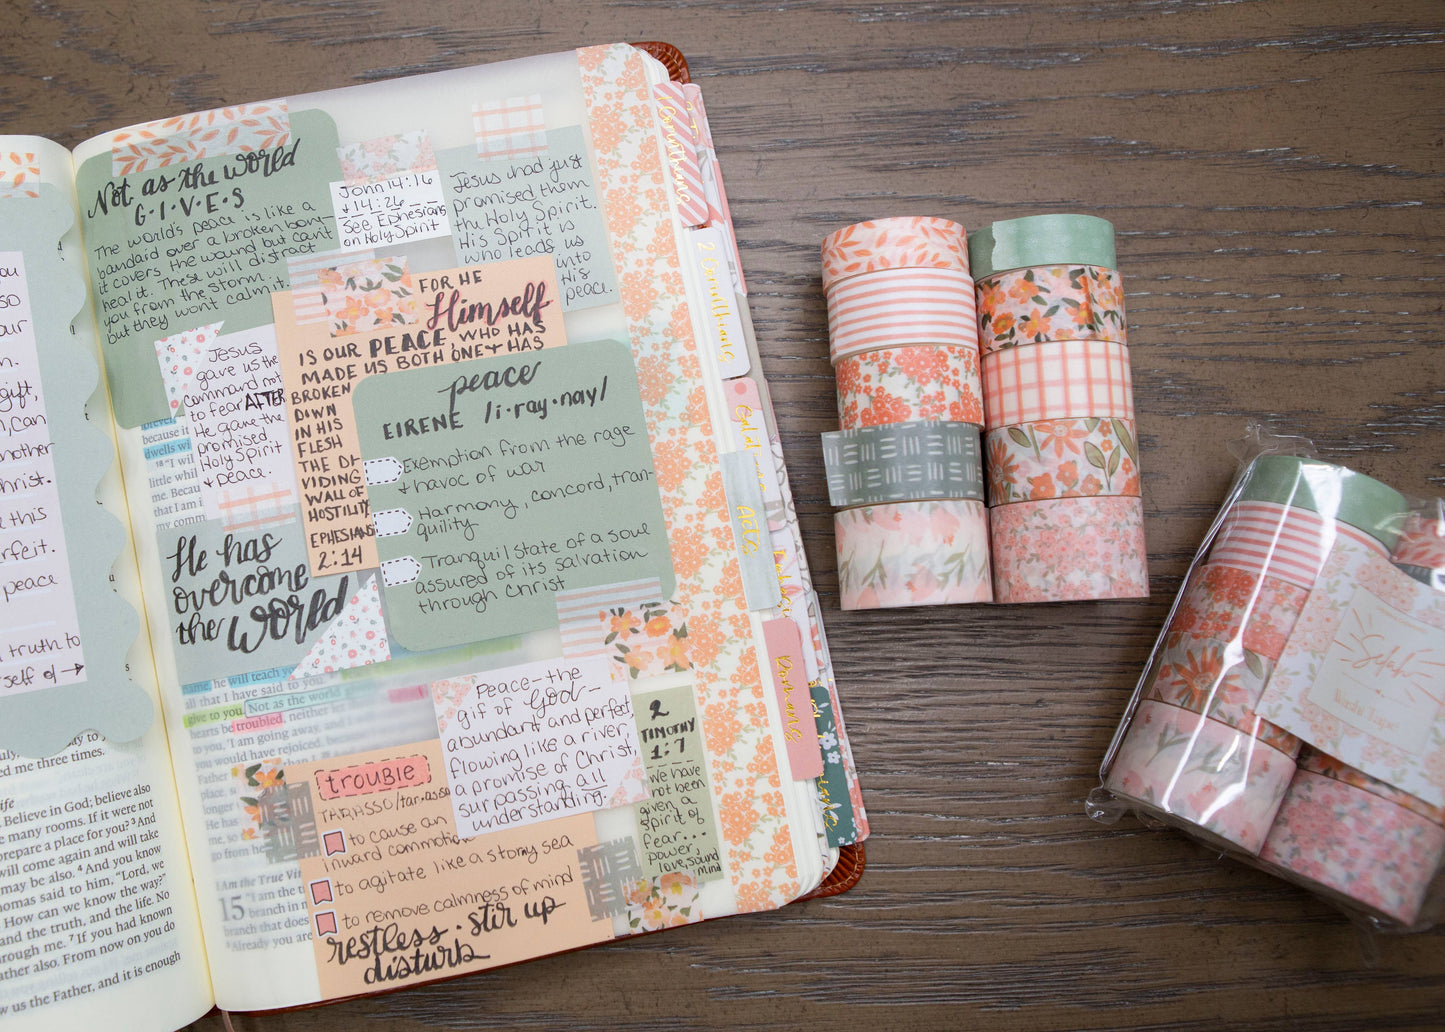 you
so
our
gift,
can
another
Christ.
e this
rfeit.
peace
l truth to
self of →
three times.
Believe in God; believe also
many rooms. If it were not
prepare a place for you? ³ And
will come again and will take
may be also. ⁴ And you know
omas said to him, "Lord, we
How can we know the way?"
and the truth, and the life. No
rough me. ⁷ If you had known
ather also. From now on you do
w us the Father, and it is enough
Not as the world
G·I·V·E·S
The world's peace is like a
bandaid over a broken bone-
it covers the wound but can't
heal it. These will distract
you from the storm.
but they won't calm it.
John 14:16
↓ 14:26
See Ephesians
on Holy Spirit
Jesus had just
promised them
the Holy Spirit.
His Spirit is
who leads us
into
His
peace.
FOR HE
Himself
IS OUR PEACE, WHO HAS
MADE US BOTH ONE + HAS
BROKEN
DOWN
IN HIS
FLESH
THE DI-
VIDING
WALL OF
HOSTILITY
EPHESIANS
2:14
Jesus
gave us the
command not
to fear AFTER
He gave the
promised
Holy Spirit
+ peace.
peace
EIRENE /i·ray·nay/
Exemption from the rage
+ havoc of war
Harmony, concord, tran-
quility
Tranquil state of a soul
assured of its salvation
through Christ
He has
overcome
the world
forever,
because it
dwells wi
¹⁸ "I wil
little while
me. Becau
that I am i
my comm
name, he will teach you
all that I have said to you.
give to you. Not as the world
hearts be troubled, neither let
to you, 'I am going away,
you would have rejoiced,
Father
place, s
longer
He has
me, so
go from he
I Am the True Vi
15 "I am the t
branch in
branch that does
Already you are
Peace-the
gif of God-
abundant and perfect
flowing like a river,
a promise of Christ,
surpassing all
understanding.
2
TIMOTHY
1:7
We have
not been
given a
spirit of
fear...
power,
love, sound
mind
trouble
TARASSO/tar·asso
to cause an
inward commotion
to agitate like a stormy sea
to remove calmness of mind
restless·stir up
disturb
1 Corinthians
2 Corinthians
Galatians
Acts
Romans
Selah
Washi Tape